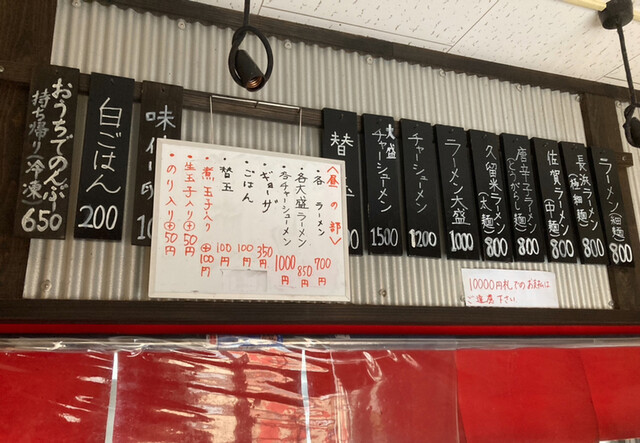 ラーメン(細麺) 800
長浜ラーメン(極細麺) 800
佐賀ラーメン(中麺) 800
唐辛子ラーメン(とうがらし麺) 800
久留米ラーメン(太麺) 800
ラーメン大盛 1000
チャーシューメン 1200
大盛チャーシューメン 1500
替
味
白ごはん 200
おうちでのんぶ 持ち帰り(冷凍) 650
〈昼の部〉
・各ラーメン 700円
・各大盛ラーメン 850円
・各チャーシューメン 1000円
・ギョーザ 350円
・ごはん 100円
・替玉 100円
・煮玉子入り ⊕100円
・生玉子入り⊕50円
・のり入り⊕50円
10000円札でのお支払は
ご遠慮下さい